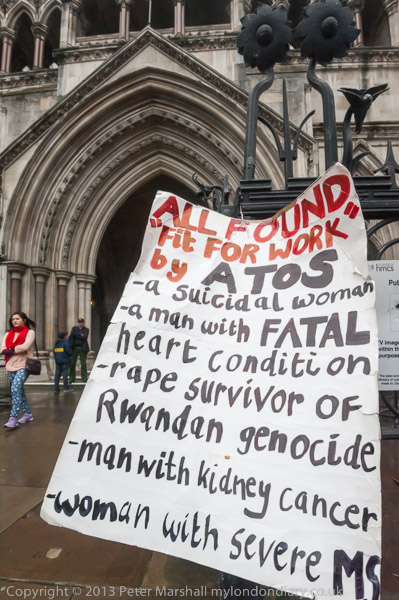 "ALL FOUND"
FIT FOR WORK
by ATOS
-a suicidal woman
-a man with FATAL
heart condition
-rape survivor of
Rwandan genocide
-man with kidney cancer
-woman with severe MS
hmcs
Copyright © 2013 Peter Marshall mylondondiary.co.uk